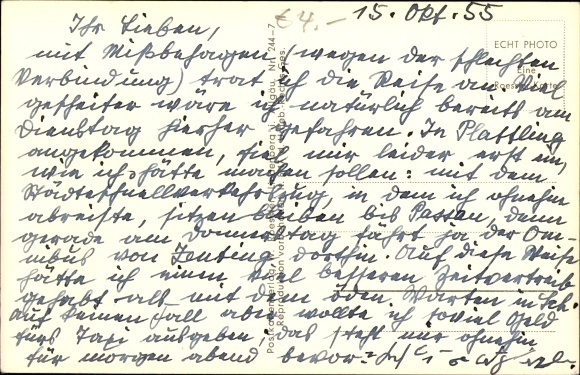 € 4.-
15. Okt. 55
Ihr Lieben,
mit Mißbehagen (wegen der schlechten
Verbindung) trat ich die Reise an. Viel
gescheiter wäre ich natürlich bereits am
Dienstag hierher gefahren. In Plattling
angekommen, fiel mir leider erst ein,
wie ich's hätte machen sollen: mit dem
Städteschnellverkehrszug, in dem ich ohnehin
abreiste, sitzen bleiben bis Passau, denn
gerade am Donnerstag fährt ja der Om-
nibus von Tenting dorthin. Auf diese Weise
hätte ich einen viel besseren Zeitvertreib
gehabt als mit dem öden Warten in Sch.
Auf keinen Fall aber wollte ich soviel Geld
fürs Taxi ausgeben, das steht mir ohnehin
für morgen abend bevor.
ECHT PHOTO
Eine
Postkartenverlag
Nr. 244-7